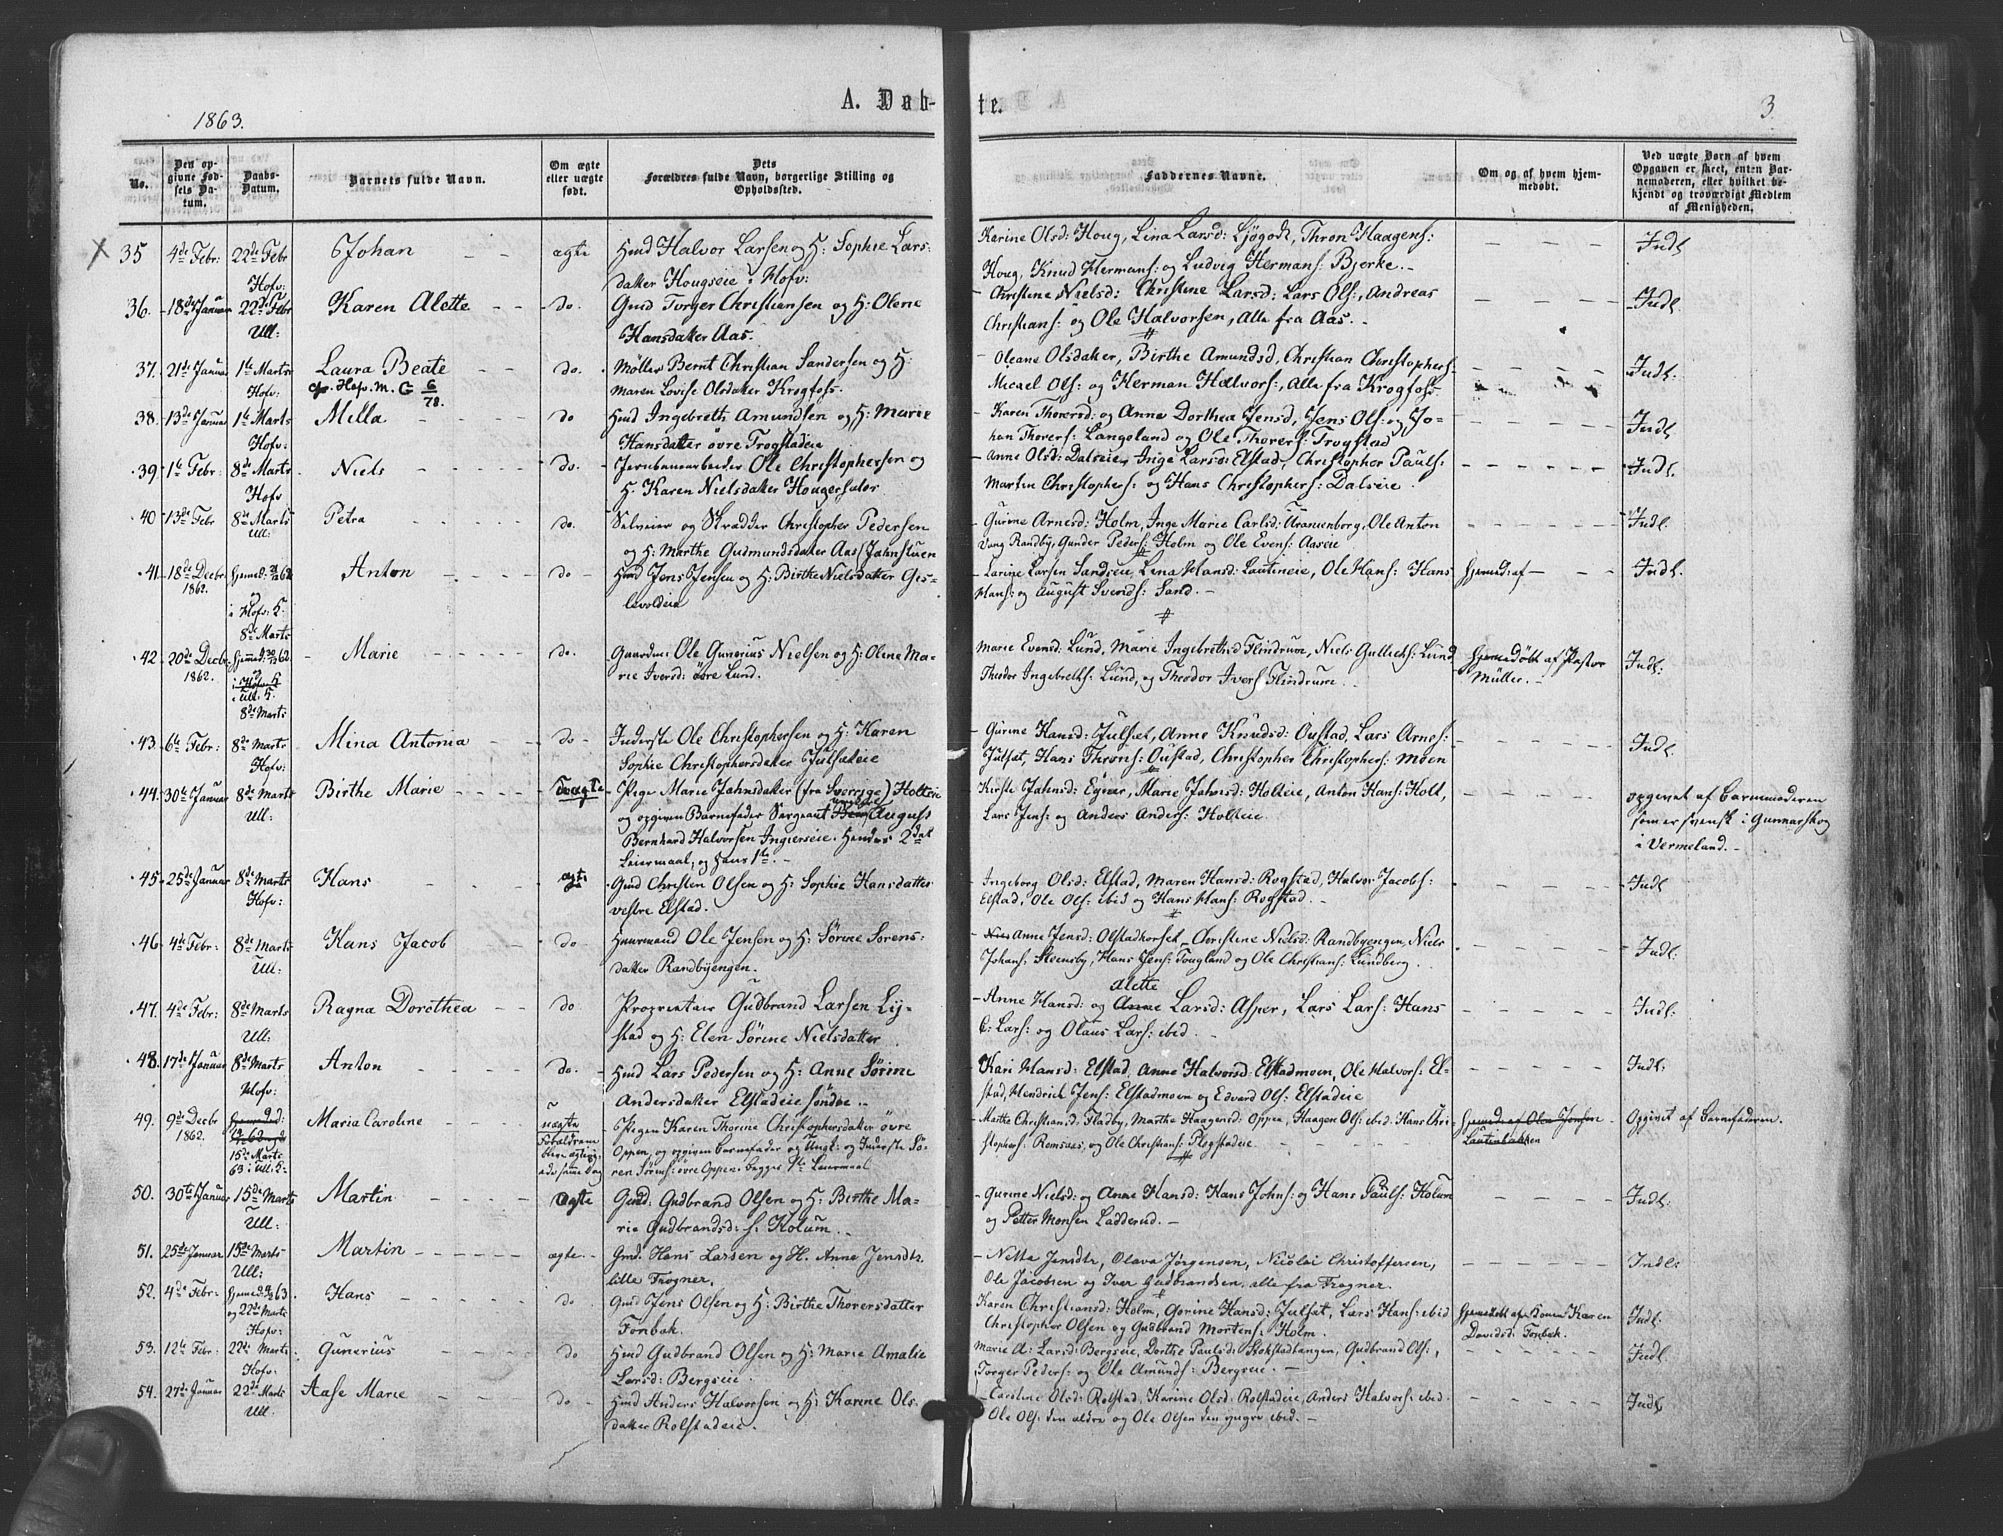 1863.
A. Døb-
te.
3.
No.
Den op-
givne Fød-
sels Da-
tum.
Daabs-
Datum.
Barnets fulde Navn.
Om ægte
eller uægte
født.
Dets
Forældres fulde Navn, borgerlige Stilling og
Opholdssted.
Faddernes Navne.
Om og af hvem hjem-
medøbt.
Ved uægte Børn af hvem
Opgaven er skeet, enten Bar-
nemoderen, eller hvilket be-
kjendt og troværdigt Medlem
af Menigheden.
35 4de Febr: 22de Febr Johan ægte Hmd Halvor Larsen og H: Sophie Lars- Karine Olsd: Houg, Lina Larsd: Ljøgodt, Thron Haagens: Indl
Hofv: datter Hougseie i Hofv: Houg, Knud Hermans: og Ludvig Hermans: Bjerke.
36. 18de Januar 22de Febr Karen Alette do. Gmd Torger Christiansen og H: Olene Christine Nielsd: Christine Larsd: Lars Ols:, Andreas Indl
Ull: Hansdatter Aas. Christians: og Ole Halvorsen, Alle fra Aas.
37. 21de Januar 1te Marts Laura Beate do. Møller Bernt Christian Sandersen og H: Oleane Olsdater, Birthe Amundsd, Christian Christophers: Indl:
Hofv: cfr. Hofv. M. G 6/78. Maren Lovise Olsdater Krogfos. Micael Ols: og Herman Halvors:, Alle fra Krogfos
38. 13de Januar 1te Marts Milla do Hmd Ingebreth Amundsen og H: Marie Karen Thorersd: og Anne Dorthea Jensd, Jens Ols: og Jo- Indl
Hofv: Hansdatter øvre Trogstadeie han Thorers: Langeland og Ole Thorers: Trogstad
39. 1te Febr 8de Marts Niels do. Jernbanearbeider Ole Christophersen og Anne Olsd: Dalseie, Inge Larsd: Elstad, Christopher Pauls: Indl.
Hofv H. Karen Nielsdatter Hougerhalor Martin Christophers: og Hans Christophers: Dalseie
40 13de Febr 8de Marts Petra do. Selveier og Skrædder Christopher Pedersen Gurine Arnesd: Holm, Inge Marie Carlsd: Uranienborg, Ole Anton Indl.
Ull: og H: Marthe Gudmundsdatter Aas (Jahnstuen Vang Randby, Gunder Peders: Holm og Ole Evens: Aaseie
41. 18de Decbr Hjemmed: Anton do Hmd Jens Jensen og H: Birthe Nielsdatter Gis- Larine Larsen Sandseie, Lina Hansd: Lauteneie, Ole Hans: Hans Hjemmed: af Indl.
1862. levoldeie Hans: og August Sverids: Sand.
i Hofv: K.
8de Marts
42. 20de Decbr. Marie do. Gaardm: Ole Gunerius Nielsen og H: Olene Ma- Marie Evensd: Lund, Marie Ingebrethsd Flindrum, Niels Gullichs: Lund Hjemmedøbt af Pastor Indl:
1862. rie Iversd: øvre Lund. Theodor Ingebreths: Lund, og Theodor Ivers: Flindrum. Müller.
i Ull. K.
8de Marts
43. 6te Febr: 8de Marts Mina Antonia do Inderste Ole Christophersen og H: Karen Gurine Hansd: Julsæt, Anne Knudsd: Oustad, Lars Arnes: Indl.
Hofv: Sophie Christophersdatter Julsæteie Julsæt, Hans Throns: Oustad, Christopher Christophers: Moen
44. 30te Januar 8de Marts Birthe Marie Uægte Pige Marie Jahnsdatter (fra Sverrige) Holteie Kirste Jahnsd: Egner, Marie Jahnsd: Holteie, Anton Hans: Holt, opgivet af Barnemoderen
Ull: og opgiven Barnefader Sergeant August Lars Jens: og Anders Anders: Holteie som er svensk i Gunnarskog
Bernhard Halvorsen Ingierseie. Hendes 2det i Vermeland.
Leiermaal, og hans 1te.
45. 25de Januar 8de Marts Hans ægte Gmd Christen Olsen og H: Sophie Hansdatter Ingeborg Olsd: Elstad, Maren Hansd: Rogstad, Halvor Jacobs: Indl
Hofv: vestre Elstad. Elstad, Ole Ols: ibid og Hans Hans: Rogstad.
46. 4de Febr: 8de Marts Hans Jacob do Huusmand Ole Jensen og H: Sørine Sørens- Anne Jensd: Olstadkorset, Christine Nielsd: Randbyengen, Niels Indl.
Ull: datter Randbyengen. Johans: Steensby, Hans Jens: Tougland og Ole Christians: Lundberg.
47. 4de Febr: 8de Marts Ragna Dorothea do Proprietair Gudbrand Larsen Lij- Anne Hansd: og Alette Larsd: Asper, Lars Lars: Hans Indl.
Ull: stad og H: Elen Sørine Nielsdatter L: Lars: og Olaus Lars: ibid.
48. 17de Januar 8de Marts Anton do. Hmd Lars Pedersen og H: Anne Sørine Kari Hansd: Elstad, Anne Halvorsd: Elstadmoen, Ole Halvors: El- Indl.
Hofv: Andersdatter Elstadeie søndre. stad, Hendrick Jens: Elstadmoen og Edvard Ols: Elstadeie
49. 9de Decbr Maria Caroline uægte Pigen Karen Thorine Christophersdatter øvre Marthe Christiansd: Fladby, Marthe Haagensd: Oppen, Haagen Ols: ibid. Hans Chri- Hjemmed: af Olea Jensen Opgivet af Barnefaderen.
1862. Oppen, og opgiven barnefader og Ungk: og Inderste Sø- stophers: Remsaas, og Ole Christians: Plogstadeie Lautenbakken
15de Marts ren Sørens: øvre Oppen. begges 1te Leiermaal
63 i Ull: K.
50. 30te Januar 15de Marts Martin ægte Gmd: Gudbrand Olsen og H: Birthe Ma- Gurine Nielsd: og Anne Hansd: Hans Johns: og Hans Pauls: Holum Indl:
Ull: rie Gudbrandsd: s. Holum. og Petter Monsen Ladderud.
51. 25de Januar 15de Marts Martin ægte Gmd: Hans Larsen og H. Anne Jensdtr. Netta Jensdtr, Olava Jørgensen, Nicolai Christoffersen, Indl:
Ull: lille Frogner. Ole Jacobsen og Iver Gudbrandsen, alle fra Frogner.
52. 4de Febr: Hans do Gmd Jens Olsen og H: Birthe Thorersdatter Karen Christiansd: Holm, Gorine Hansd: Julsæt, Lars Hans: ibid Hjemmedøbt af Konen Karen Indl.
og 22de Marts Fonbæk. Christopher Olsen og Gudbrand Mortens: Holm. Davidsd: Fonbæk.
Hofv:
53. 12te Febr: 22de Marts Gunerius do Hmd Gudbrand Olsen og H: Marie Amalie Marie A: Larsd: Bergseie, Dorthe Paulsd: Stokstadtangen, Gudbrand Ols:, Indl.
Hofv: Larsd: Bergseie. Torger Peders: og Ole Amunds: Bergseie.
54. 27de Januar 22de Marts Aase Marie do Hmd Anders Halvorsen og H: Karine Ols- Caroline Olsd: Rolstad, Karine Olsd: Rolstadeie, Anders Halvors: ibid. Indl.
Ull. datter Rolstadeie. Ole Ols: den ældre og Ole Olsen den yngre ibid.